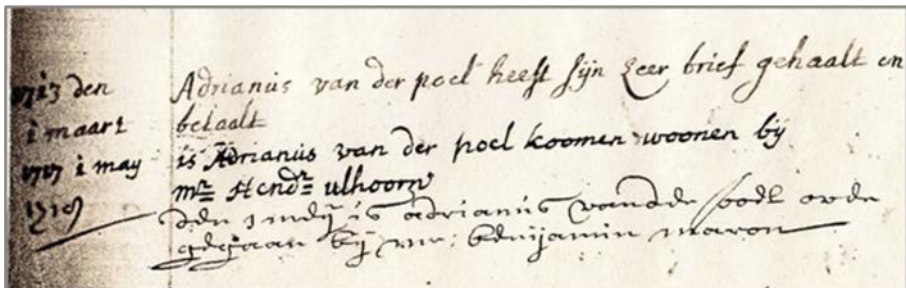 1713 den Adrianus van der poel heeft sijn Leer brief gehaalt en
1 maart betaalt
1717 1 may is Adrianus van der poel koomen woonen by
mr Hendr ulhoorn
den 1 meij is adrianus vande poel over
gegaan bij mr: benijamin maron